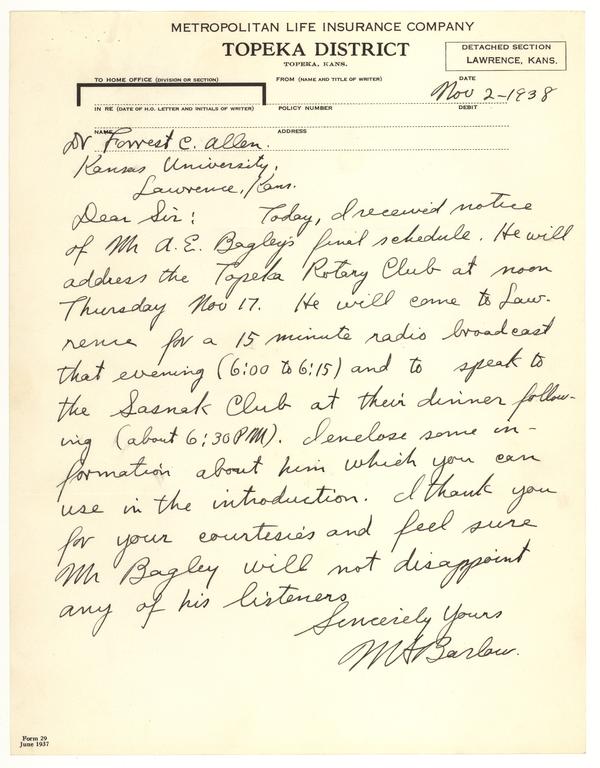 METROPOLITAN LIFE INSURANCE COMPANY
TOPEKA DISTRICT
TOPEKA, KANS.
DETACHED SECTION
LAWRENCE, KANS.
TO HOME OFFICE (DIVISION OR SECTION)
FROM (NAME AND TITLE OF WRITER)
DATE
Nov 2-1938
IN RE (DATE OF H.O. LETTER AND INITIALS OF WRITER)
POLICY NUMBER
DEBIT
NAME
ADDRESS
Dr Forrest C. Allen.
Kansas University,
Lawrence, Kans.
Dear Sir: Today, I received notice
of Mr A. E. Bagley's final schedule. He will
address the Topeka Rotary Club at noon
Thursday Nov 17. He will come to Law-
rence for a 15 minute radio broadcast
that evening (6:00 to 6:15) and to speak to
the Sasnak Club at their dinner follow-
ing (about 6:30 PM). I enclose some in-
formation about him which you can
use in the introduction. I thank you
for your courtesies and feel sure
Mr Bagley will not disappoint
any of his listeners
Sincerely Yours
M H Barlow.
Form 29
June 1937